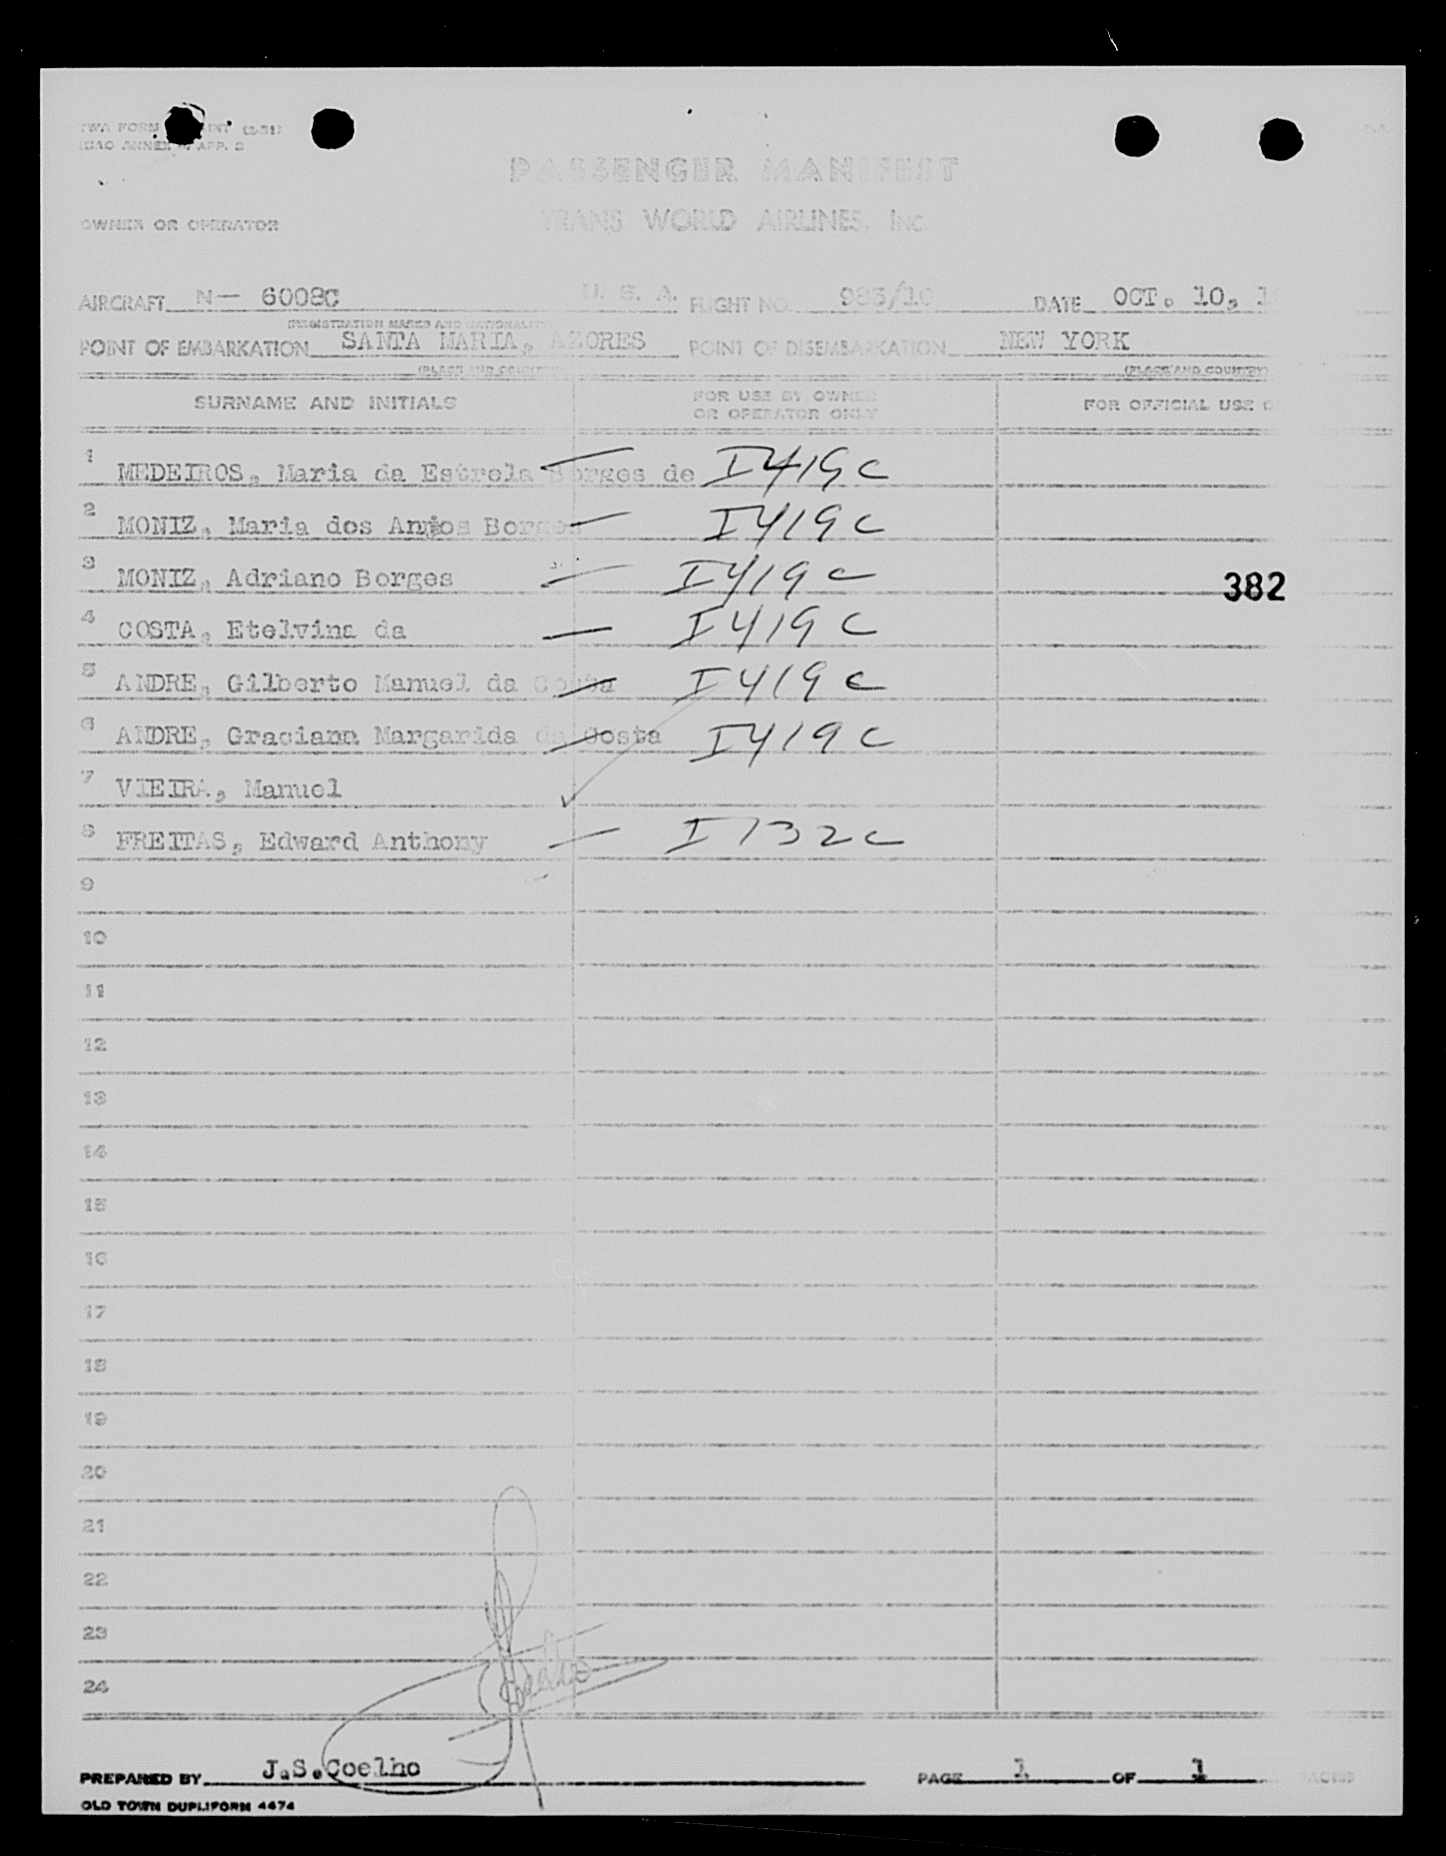 TWA FORM
ICAO ANNEX 9, APP. 2
PASSENGER MANIFEST
OWNER OR OPERATOR TRANS WORLD AIRLINES, INC
AIRCRAFT N- 6008C U. S. A. FLIGHT NO. 983/10 DATE OCT. 10,
(REGISTRATION MARKS AND NATIONALITY
POINT OF EMBARKATION SANTA MARIA, AZORES POINT OF DISEMBARKATION NEW YORK
(PLACE AND COUNTRY) (PLACE AND COUNTRY)
SURNAME AND INITIALS FOR USE BY OWNER OR OPERATOR ONLY FOR OFFICIAL USE
1 MEDEIROS, Maria da Estrela Borges de — I419C
2 MONIZ, Maria dos Anjos Borges — I419C
3 MONIZ, Adriano Borges — I419C 382
4 COSTA, Etelvina da — I419C
5 ANDRE, Gilberto Manuel da Costa — I419C
6 ANDRE, Graciana Margarida da Costa — I419C
7 VIEIRA, Manuel ✓
8 FREITAS, Edward Anthony — I132C
9
10
11
12
13
14
15
16
17
18
19
20
21
22
23
24
Coelho
PREPARED BY J.S.Coelho PAGE 1 OF 1
OLD TOWN DUPLIFORM 4474